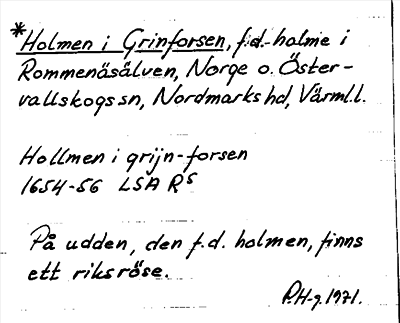 *Holmen i Grinforsen, f.d. holme i
Rommenäsälven, Norge o. Öster-
vallskogs sn, Nordmarks hd, Värml. l.
Hollmen i grijn-forsen
1654-56 LSA R5
På udden, den f.d. holmen, finns
ett riksröse.
P.H-g. 1971.